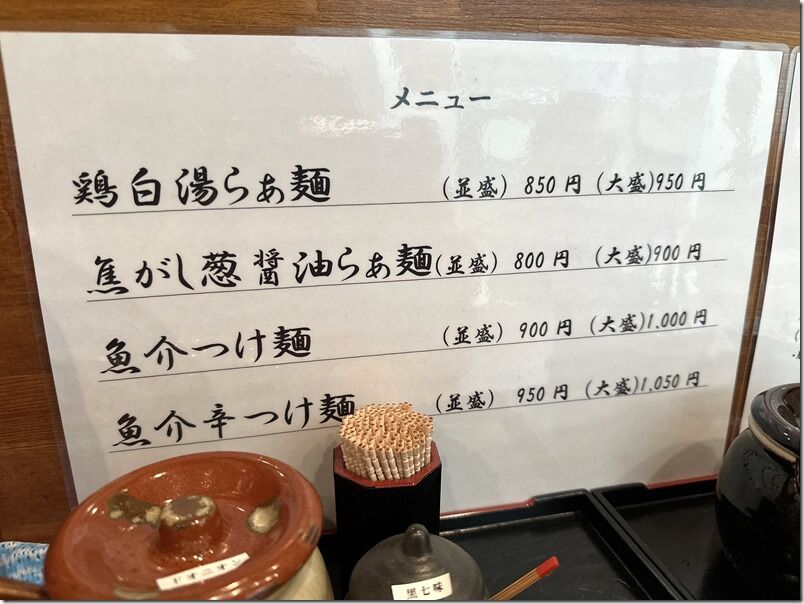 メニュー
鶏白湯らぁ麺 (並盛) 850円 (大盛)950円
焦がし葱醤油らぁ麺(並盛) 800円 (大盛)900円
魚介つけ麺 (並盛) 900円 (大盛)1,000円
魚介辛つけ麺 (並盛) 950円 (大盛)1,050円
ドオニオン
黒七味